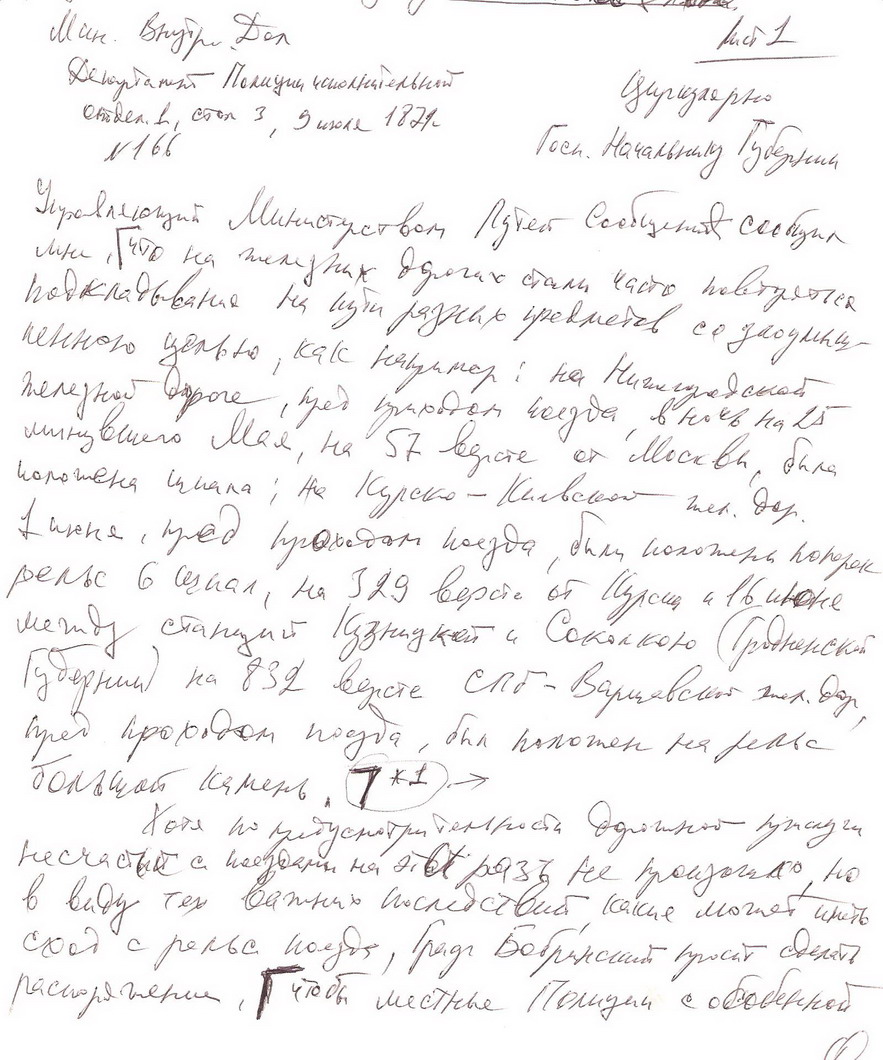 Мин. Внутр. Дел
лист 1
Департамент Полиции исполнительной
отдел. 1, стол 3, 9 июля 1871г.
№166
Циркулярно
Госп. Начальнику Губернии
Управляющий Министерством Путей Сообщений сообщил
мне, что на железных дорогах стали часто повторяться
подкладывание на пути разных предметов со злоумыш-
ленною целью, как например: на Нижегородской
железной дороге, пред приходом поезда, в ночь на 25
минувшего Мая, на 57 версте от Москвы, была
положена шпала; на Курско-Киевской жел. дор.
1 июня, пред проходом поезда, были положены поперек
рельс 6 шпал, на 329 версте от Курска и 16 июне
между станций Кузницкой и Соколкою (Гродненской
Губернии) на 832 версте СПб-Варшавской жел. дор.,
пред проходом поезда, был положен на рельс
большой камень. *1 →
Хотя по предусмотрительности дорожной прислуги
несчастий с поездами на этот разъ не произошло, но
в виду тех важных последствий, какие может иметь
сход с рельс поезда, Графъ Бобринский просит сделать
распоряжение, чтобы местные Полиции с особенной